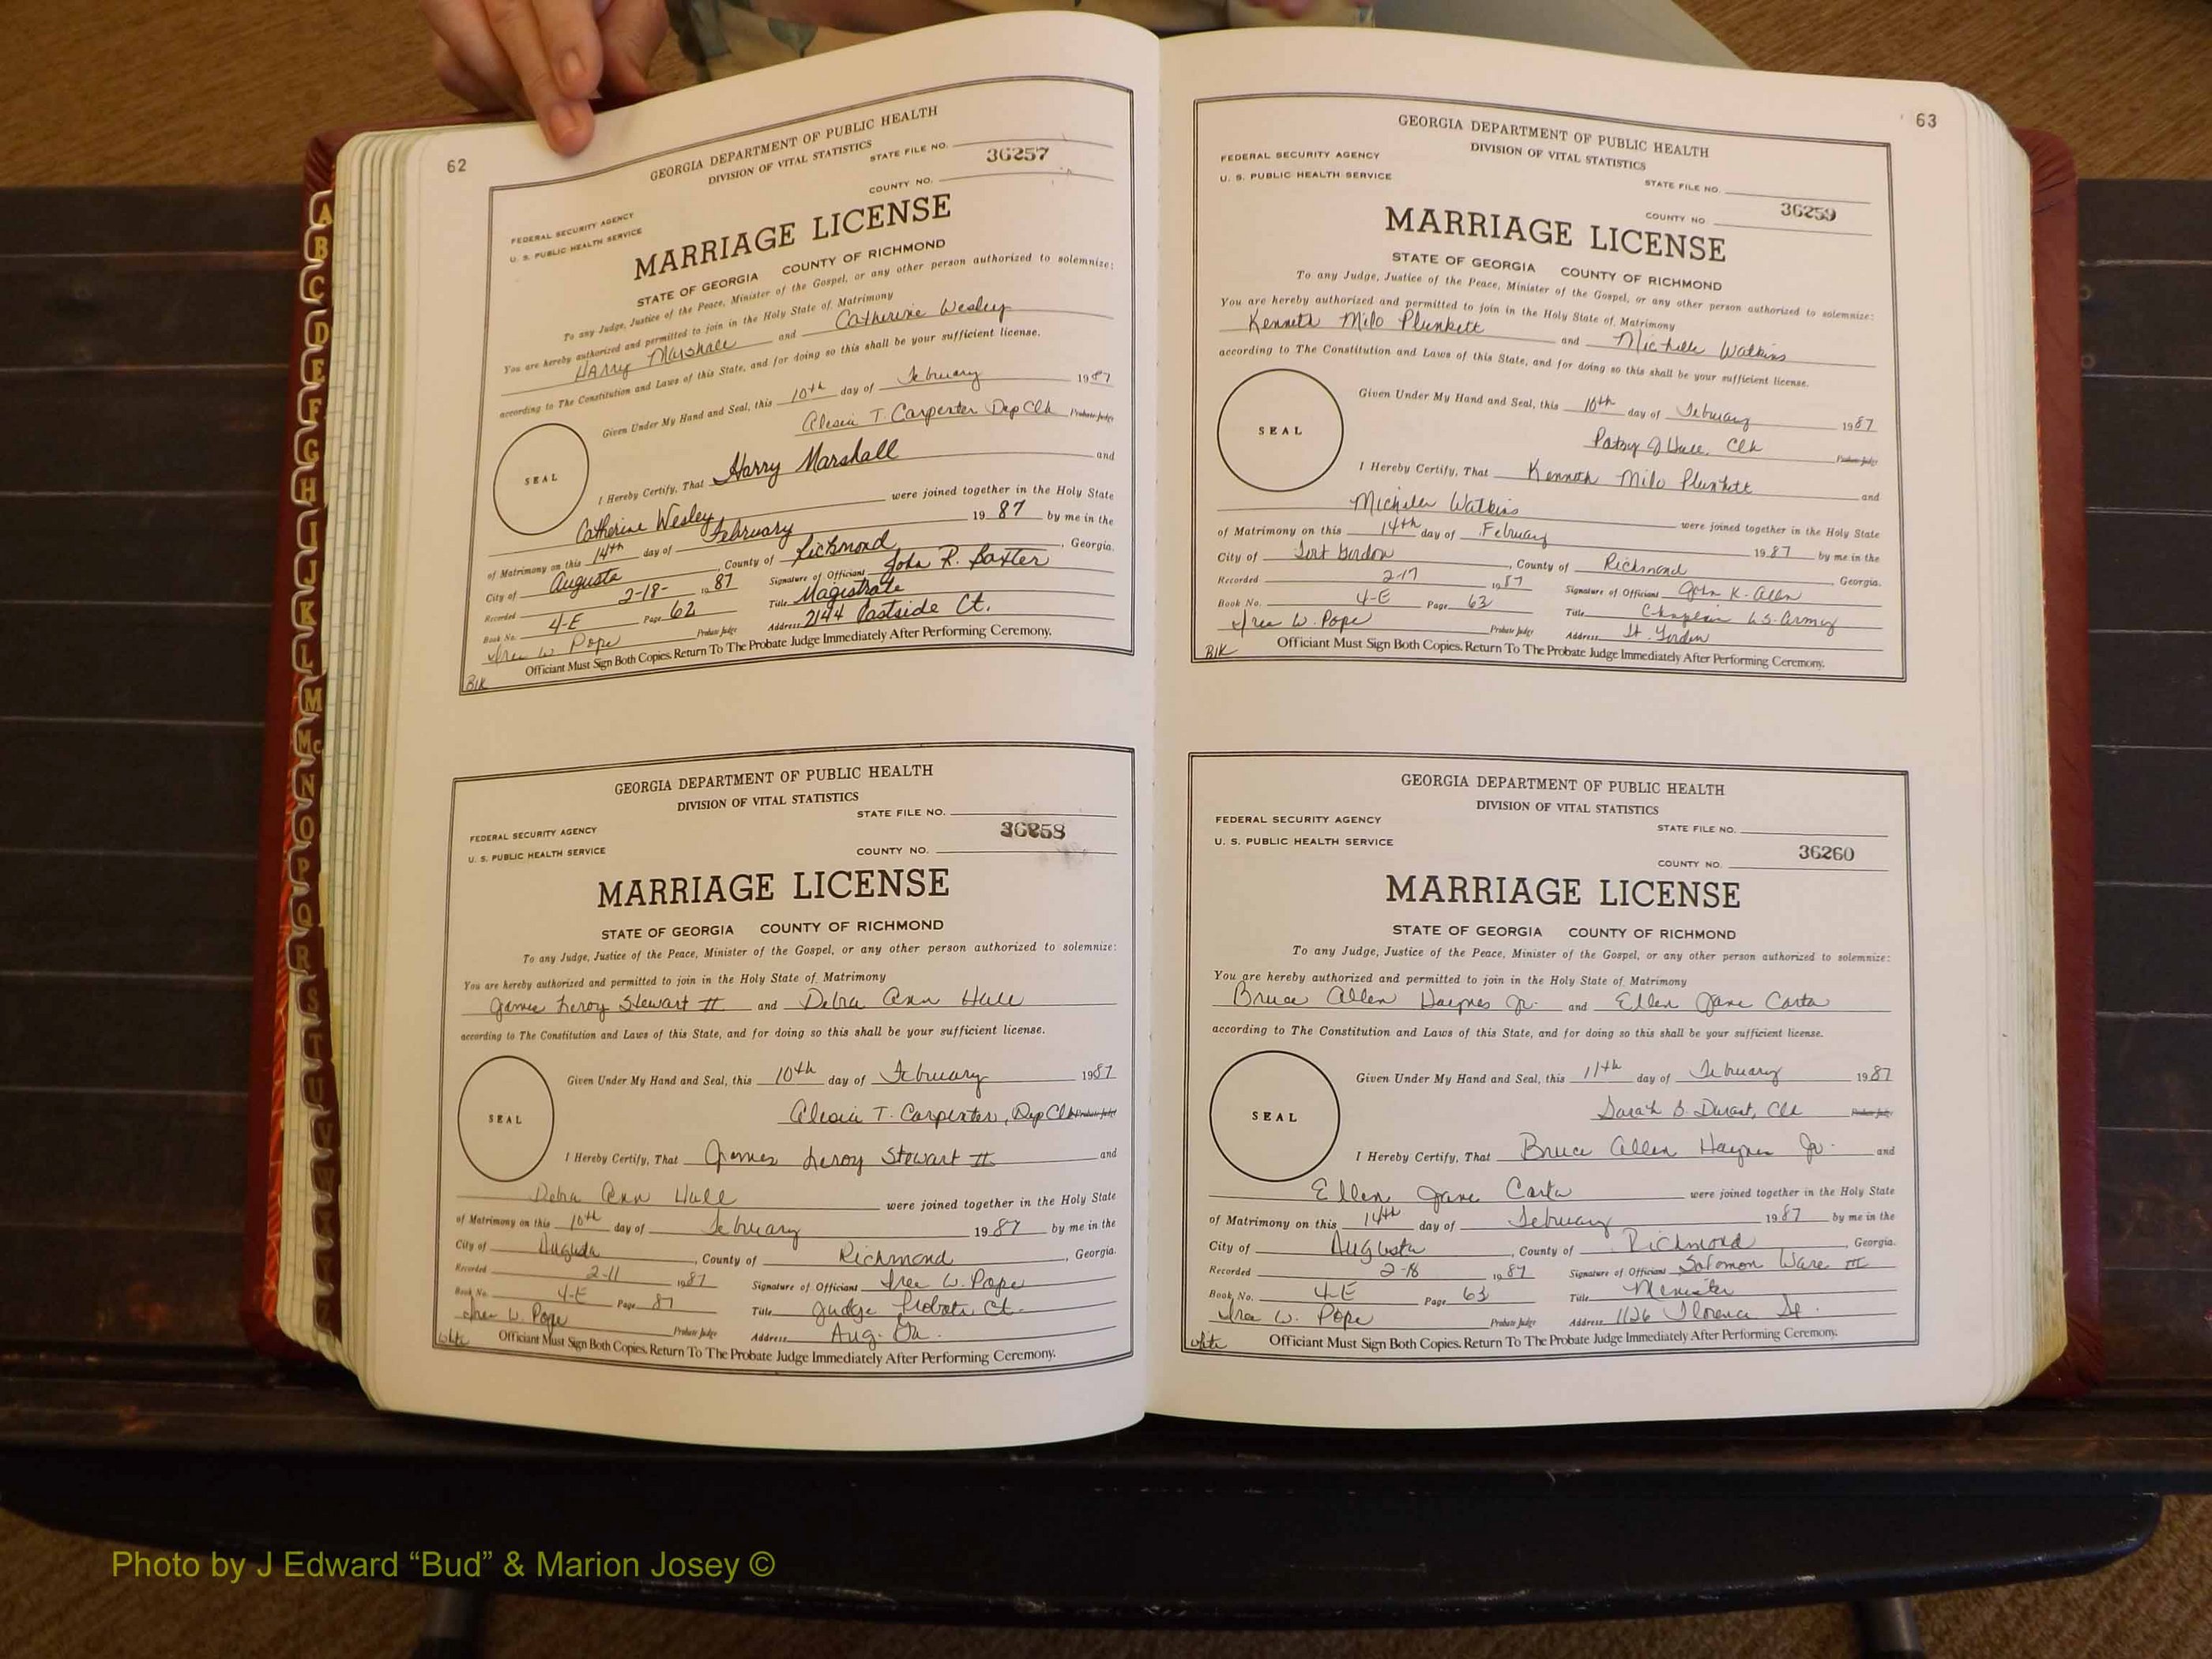 62
GEORGIA DEPARTMENT OF PUBLIC HEALTH
DIVISION OF VITAL STATISTICS
STATE FILE NO.
36257
COUNTY NO.
FEDERAL SECURITY AGENCY
U. S. PUBLIC HEALTH SERVICE
MARRIAGE LICENSE
STATE OF GEORGIA COUNTY OF RICHMOND
To any Judge, Justice of the Peace, Minister of the Gospel, or any other person authorized to solemnize:
You are hereby authorized and permitted to join in the Holy State of Matrimony
Harry Marshall and Catherine Wesley
according to The Constitution and Laws of this State, and for doing so this shall be your sufficient license.
Given Under My Hand and Seal, this 10th day of February 1987
Alesia T. Carpenter Dep Clk Probate Judge
SEAL
I Hereby Certify, That Harry Marshall and
Catherine Wesley were joined together in the Holy State
of Matrimony on this 14th day of February 1987 by me in the
City of Augusta, County of Richmond, Georgia.
Recorded 2-18- 1987 Signature of Officiant John R. Baxter
Book No. 4-E Page 62 Title Magistrate
W. Pope Probate Judge Address 2144 Eastside Ct.
Officiant Must Sign Both Copies. Return To The Probate Judge Immediately After Performing Ceremony.
Blk
GEORGIA DEPARTMENT OF PUBLIC HEALTH
DIVISION OF VITAL STATISTICS
STATE FILE NO.
36258
FEDERAL SECURITY AGENCY
U. S. PUBLIC HEALTH SERVICE
COUNTY NO.
MARRIAGE LICENSE
STATE OF GEORGIA COUNTY OF RICHMOND
To any Judge, Justice of the Peace, Minister of the Gospel, or any other person authorized to solemnize:
You are hereby authorized and permitted to join in the Holy State of Matrimony
James Leroy Stewart II and Debra Ann Hall
according to The Constitution and Laws of this State, and for doing so this shall be your sufficient license.
Given Under My Hand and Seal, this 10th day of February 1987
Alesia T. Carpenter, Dep Clk Probate Judge
SEAL
I Hereby Certify, That James Leroy Stewart II and
Debra Ann Hall were joined together in the Holy State
of Matrimony on this 10th day of February 1987 by me in the
City of Augusta, County of Richmond, Georgia.
Recorded 2-11 1987 Signature of Officiant W. Pope
Book No. 4-E Page 87 Title Judge Probate Ct.
W. Pope Probate Judge Address Aug. Ga.
white Officiant Must Sign Both Copies. Return To The Probate Judge Immediately After Performing Ceremony.
63
GEORGIA DEPARTMENT OF PUBLIC HEALTH
DIVISION OF VITAL STATISTICS
FEDERAL SECURITY AGENCY
U. S. PUBLIC HEALTH SERVICE
STATE FILE NO.
36259
COUNTY NO
MARRIAGE LICENSE
STATE OF GEORGIA COUNTY OF RICHMOND
To any Judge, Justice of the Peace, Minister of the Gospel, or any other person authorized to solemnize:
You are hereby authorized and permitted to join in the Holy State of Matrimony
Kenneth Milo Plunkett and Michelle Watkins
according to The Constitution and Laws of this State, and for doing so this shall be your sufficient license.
Given Under My Hand and Seal, this 10th day of February 1987
Patsy J Hall, Clk Probate Judge
SEAL
I Hereby Certify, That Kenneth Milo Plunkett and
Michelle Watkins were joined together in the Holy State
of Matrimony on this 14th day of February 1987 by me in the
City of Fort Gordon, County of Richmond, Georgia.
Recorded 2-17 1987 Signature of Officiant John K. Allen
Book No. 4-E Page 63 Title Chaplain U.S. Army
W. Pope Probate Judge Address Ft. Gordon
Blk Officiant Must Sign Both Copies. Return To The Probate Judge Immediately After Performing Ceremony.
GEORGIA DEPARTMENT OF PUBLIC HEALTH
DIVISION OF VITAL STATISTICS
FEDERAL SECURITY AGENCY
STATE FILE NO.
U. S. PUBLIC HEALTH SERVICE
36260
COUNTY NO.
MARRIAGE LICENSE
STATE OF GEORGIA COUNTY OF RICHMOND
To any Judge, Justice of the Peace, Minister of the Gospel, or any other person authorized to solemnize:
You are hereby authorized and permitted to join in the Holy State of Matrimony
Bruce Allen Haynes Jr. and Ellen Jane Carta
according to The Constitution and Laws of this State, and for doing so this shall be your sufficient license.
Given Under My Hand and Seal, this 11th day of February 1987
Sarah B. Durant, Clk Probate Judge
SEAL
I Hereby Certify, That Bruce Allen Haynes Jr. and
Ellen Jane Carta were joined together in the Holy State
of Matrimony on this 14th day of February 1987 by me in the
City of Augusta, County of Richmond, Georgia.
Recorded 2-18 1987 Signature of Officiant Solomon Ware III
Book No. 4-E Page 63 Title Menister
W. Pope Probate Judge Address 1126 Florence St.
white Officiant Must Sign Both Copies. Return To The Probate Judge Immediately After Performing Ceremony.
A
B
C
D
E
F
G
H
I
J
K
L
M
Mc
N
O
P
Q
R
S
T
U
V
W
Photo by J Edward “Bud” & Marion Josey ©